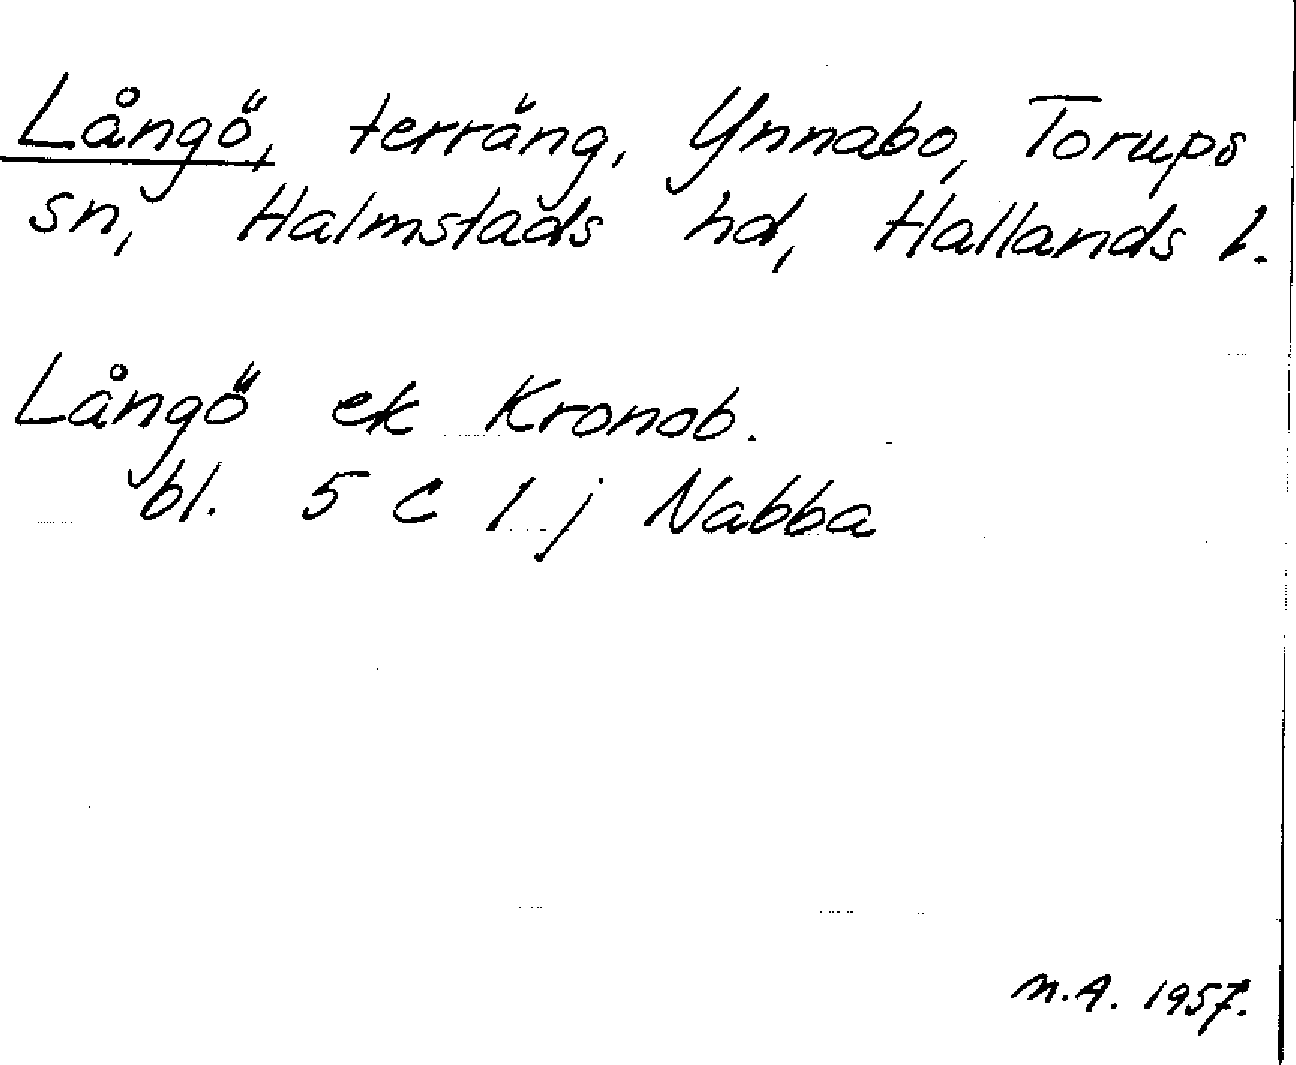 Långö, terräng, Ynnabo, Torups
sn, Halmstads hd, Hallands l.
Långö ek Kronob.
bl. 5 C 1 j Nabba
M.A. 1957.